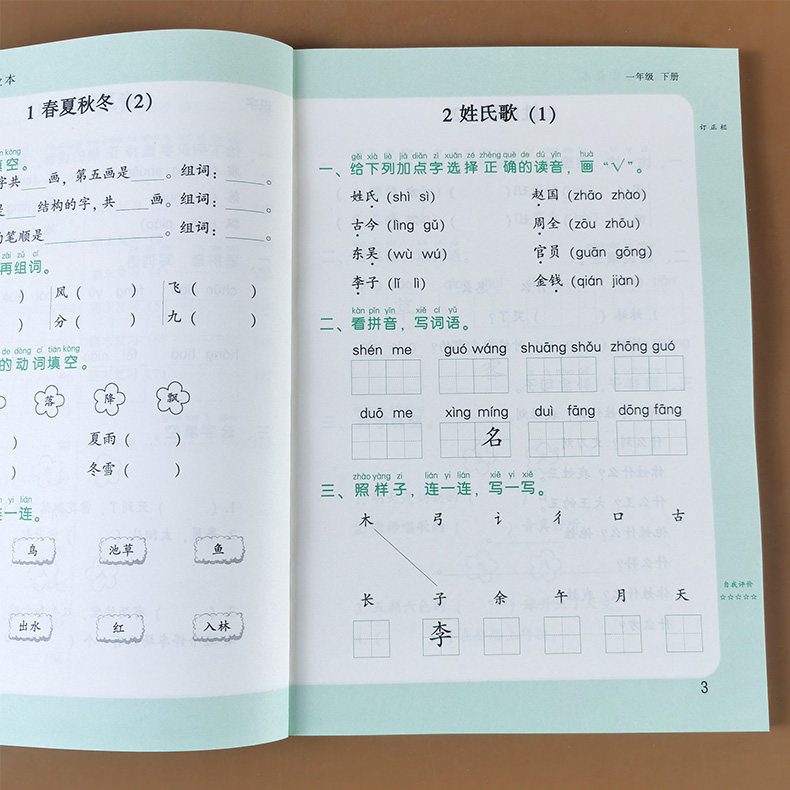 本
1 春夏秋冬（2）
填空。
字共____画，第五画是____。组词：____。
是____结构的字，共____画。组词：____。
笔顺是____________。组词：____。
zài zǔ cí
再组词。
） 风（ ） 飞（ ）
） 分（ ） 九（ ）
de dòng cí tián kòng
的动词填空。
落 降 飘
） 夏雨（ ）
） 冬雪（ ）
yi lián
一连。
鸟 池草 鱼
出水 红 入林
一年级 下册
2 姓氏歌（1）
订正栏
gěi xià liè jiā diǎn zì xuǎn zé zhèng què de dú yīn huà
一、给下列加点字选择正确的读音，画“√”。
姓氏（shì sì） 赵国（zhāo zhào）
古今（lìng gǔ） 周全（zōu zhōu）
东吴（wù wú） 官员（guān gōng）
李子（lǐ lì） 金钱（qián jiàn）
kàn pīn yīn xiě cí yǔ
二、看拼音，写词语。
shén me guó wáng shuāng shǒu zhōng guó
duō me xìng míng duì fāng dōng fāng
名
zhào yàng zi lián yi lián xiě yi xiě
三、照样子，连一连，写一写。
木 弓 讠 彳 口 古
长 子 余 午 月 天
李
自我评价
☆☆☆☆☆
3